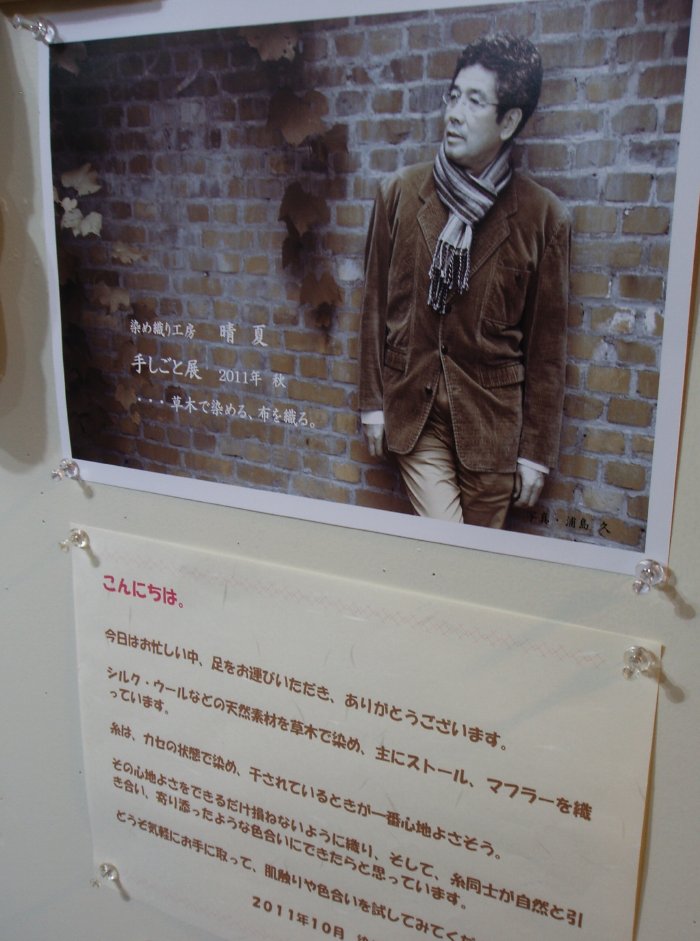 染め織り工房　晴　夏
手しごと展　2011年　秋
・・・草木で染める、布を織る。
写真・浦島　久
こんにちは。
今日はお忙しい中、足をお運びいただき、ありがとうございます。
シルク・ウールなどの天然素材を草木で染め、主にストール、マフラーを織
っています。
糸は、カセの状態で染め、干されているときが一番心地よさそう。
その心地よさをできるだけ損ねないように織り、そして、糸同士が自然と引
き合い、寄り添ったような色合いにできたらと思っています。
どうぞ気軽にお手に取って、肌触りや色合いを試してみてくだ
2011年10月